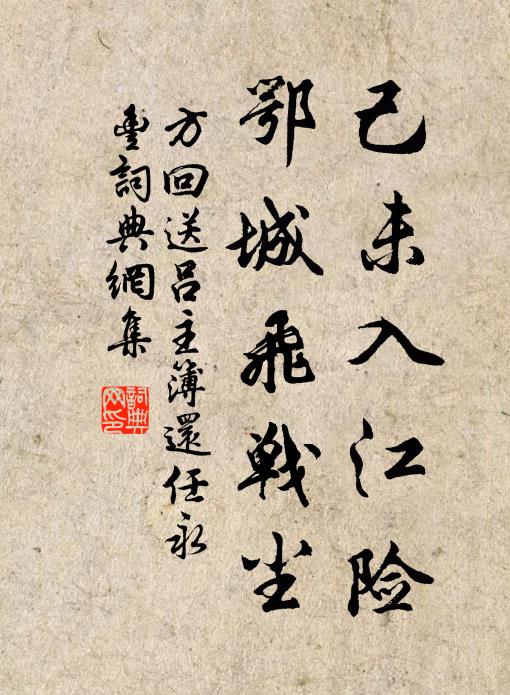 己未入江险
鄂城飛戦尘
方回送吕主簿還任永
豊詞典網集
詞典
网印